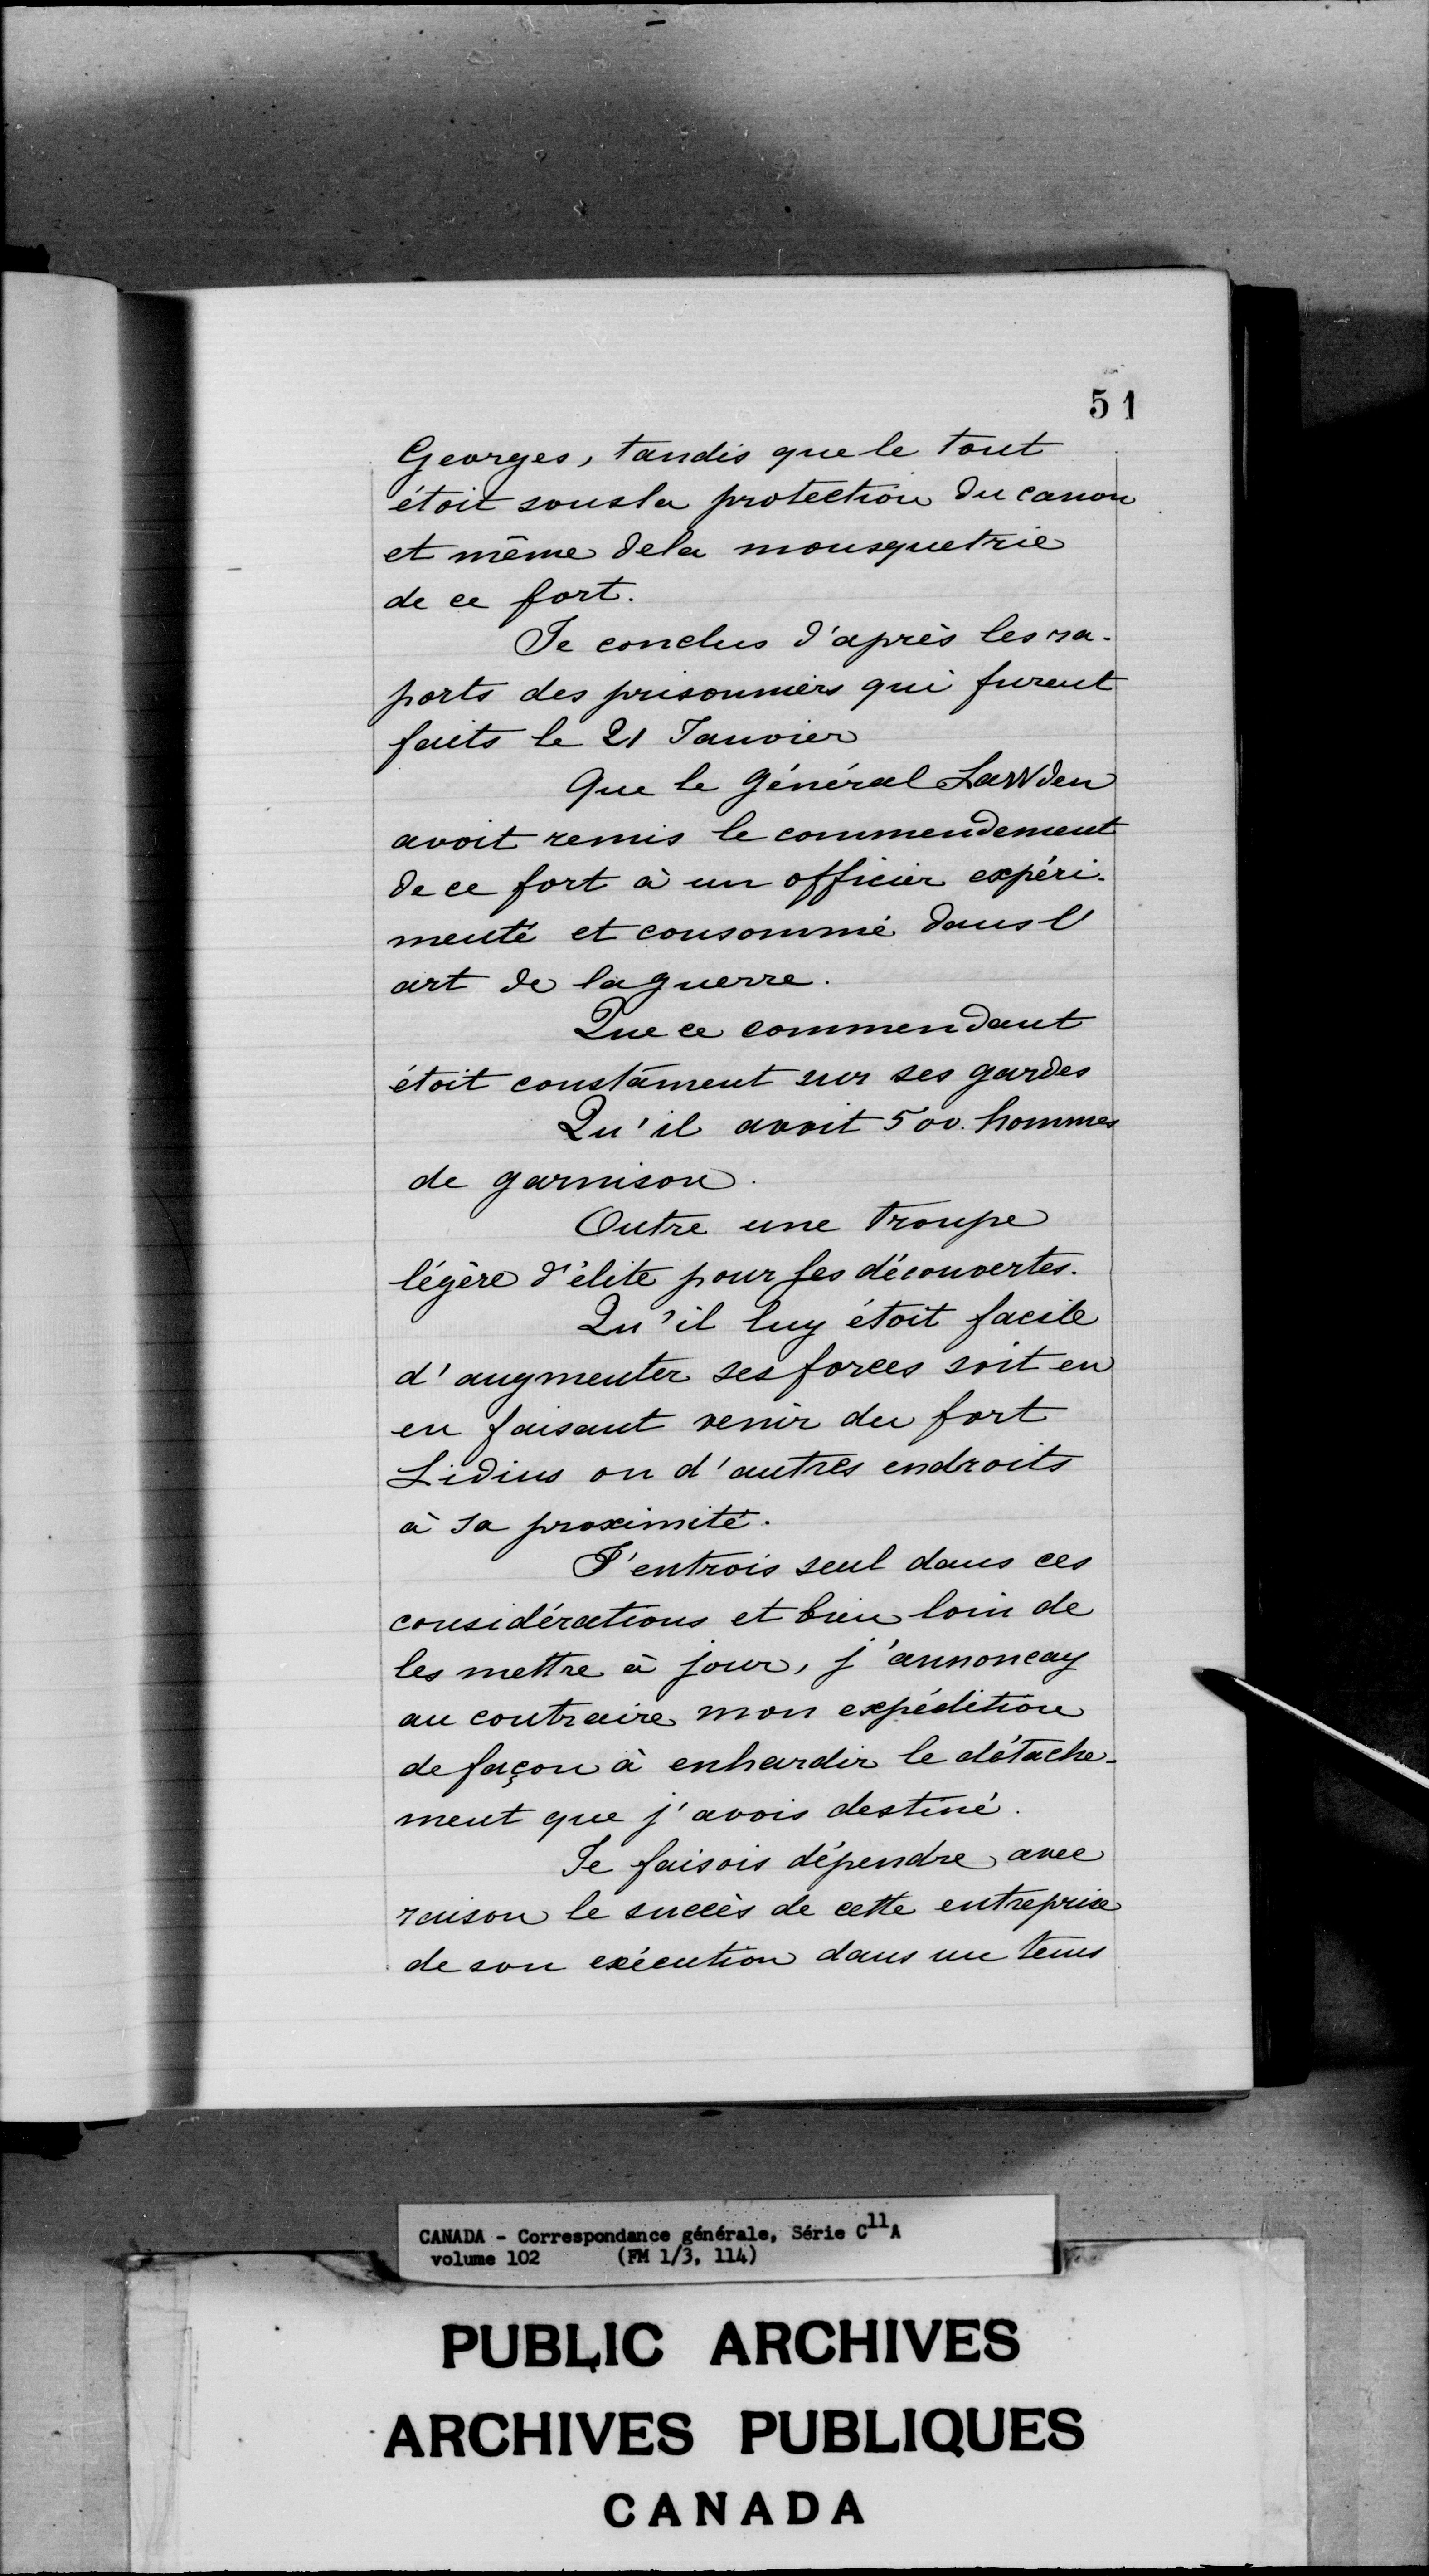 51
Georges, tandis que le tout
étoit sousla protection du canon
et même dela mousquetrie
de ce fort.
Je conclus d'après les ra-
ports des prisonniers qui furent
faits le 21 Janvier
Que le Général LaWden
avoit remis le commendement
de ce fort à un officier expéri-
menté et consommé dans l'
art de la guerre.
Que ce commendant
étoit constâment sur ses gardes
Qu'il avoit 500. hommes
de garnison.
Outre une troupe
légère d'élite pour ses découvertes.
Qu'il luy étoit facile
d'augmenter ses forces soit en
en faisant venir du fort
Lidius ou d'autres endroits
à sa proximité.
J'entrois seul dans ces
considérations et bien loin de
les mettre à jour, j'annoncay
au contraire mon expédition
de façon à enhardir le détache-
ment que j'avois destiné.
Je faisois dépendre avec
raison le succès de cette entreprise
de son exécution dans un tems
CANADA - Correspondance générale, Série C11A
volume 102 (FM 1/3, 114)
PUBLIC ARCHIVES
ARCHIVES PUBLIQUES
CANADA